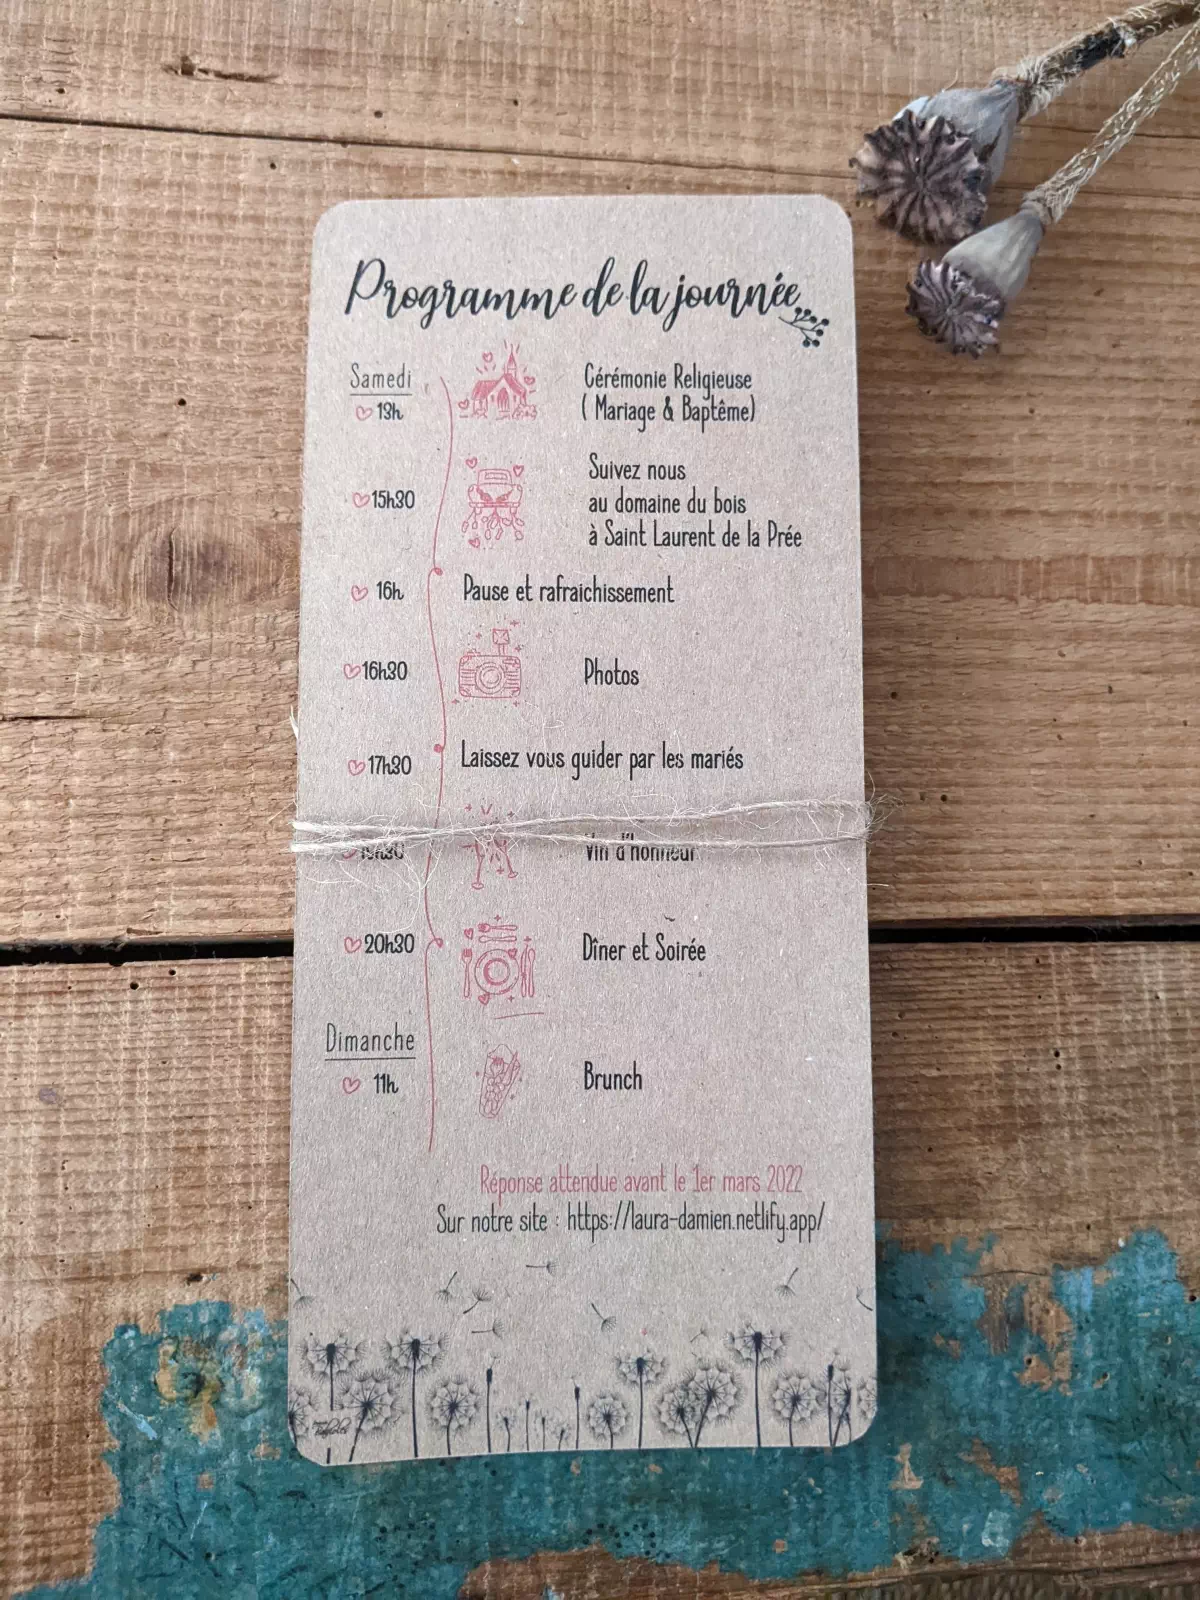 Programme de la journée
Samedi
13h
Cérémonie Religieuse
( Mariage & Baptême)
15h30
Suivez nous
au domaine du bois
à Saint Laurent de la Prée
16h
Pause et rafraichissement
16h30
Photos
17h30
Laissez vous guider par les mariés
19h30
Vin d'honneur
20h30
Dîner et Soirée
Dimanche
11h
Brunch
Réponse attendue avant le 1er mars 2022
Sur notre site : https://laura-damien.netlify.app/